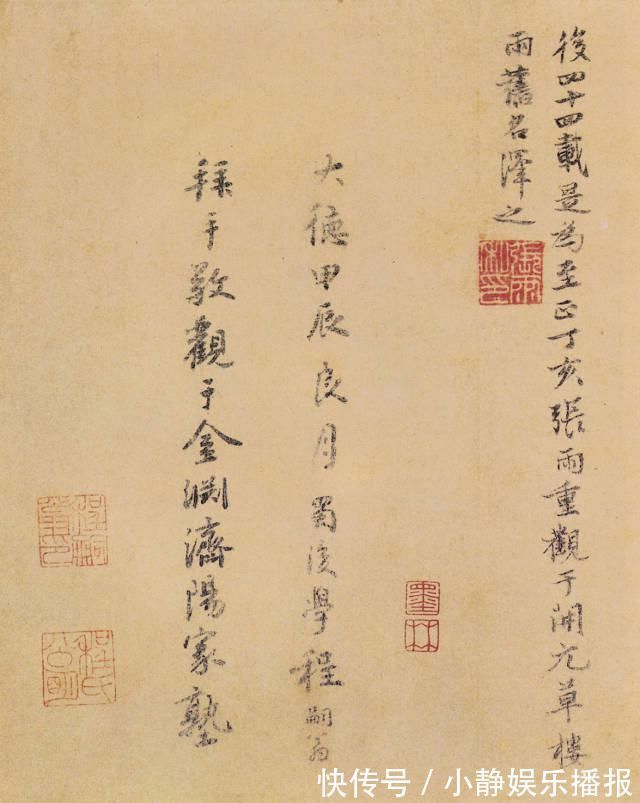 後四十四載是為至正丁亥張雨重觀于開元草樓
雨舊名澤之
墨林
大德甲辰良月蜀後學程嗣翁
拜手敬觀于金淵濟陽家塾
快传号／小静娱乐播报